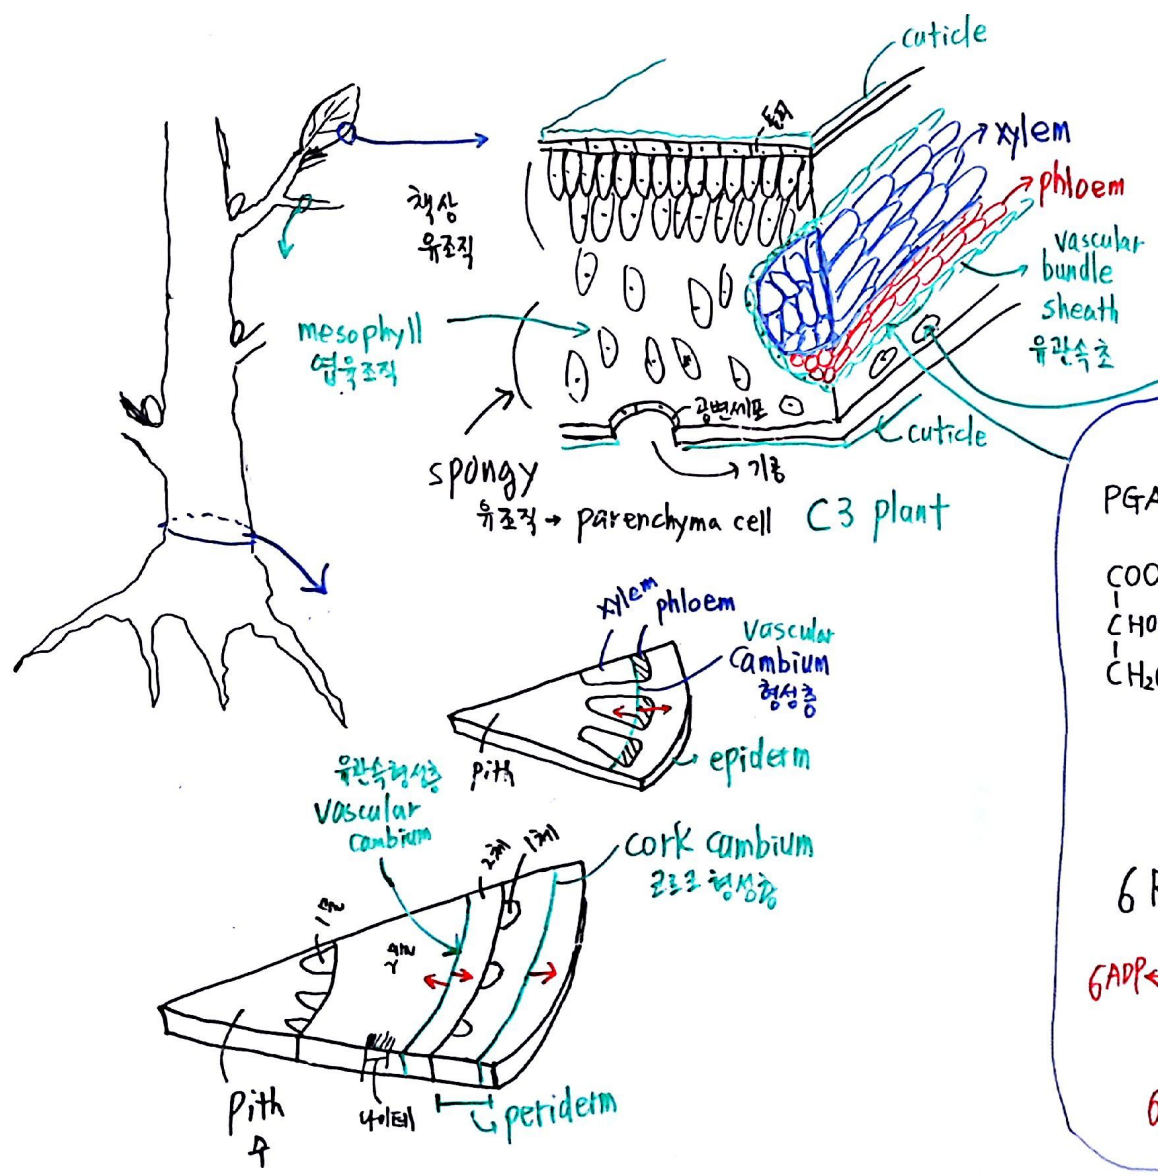 cuticle
표피
xylem
phloem
책상
유조직
vascular
bundle
sheath
유관속초
mesophyll
엽육조직
공변세포
cuticle
기공
spongy
유조직 → parenchyma cell
C3 plant
PGA
COO
CHO
CH₂
xylem
phloem
vascular
cambium
형성층
pith
epiderm
유관속형성층
vascular
cambium
2체
1체
cork cambium
코르크 형성층
6
6ADP
pith
수
나이테
periderm
6